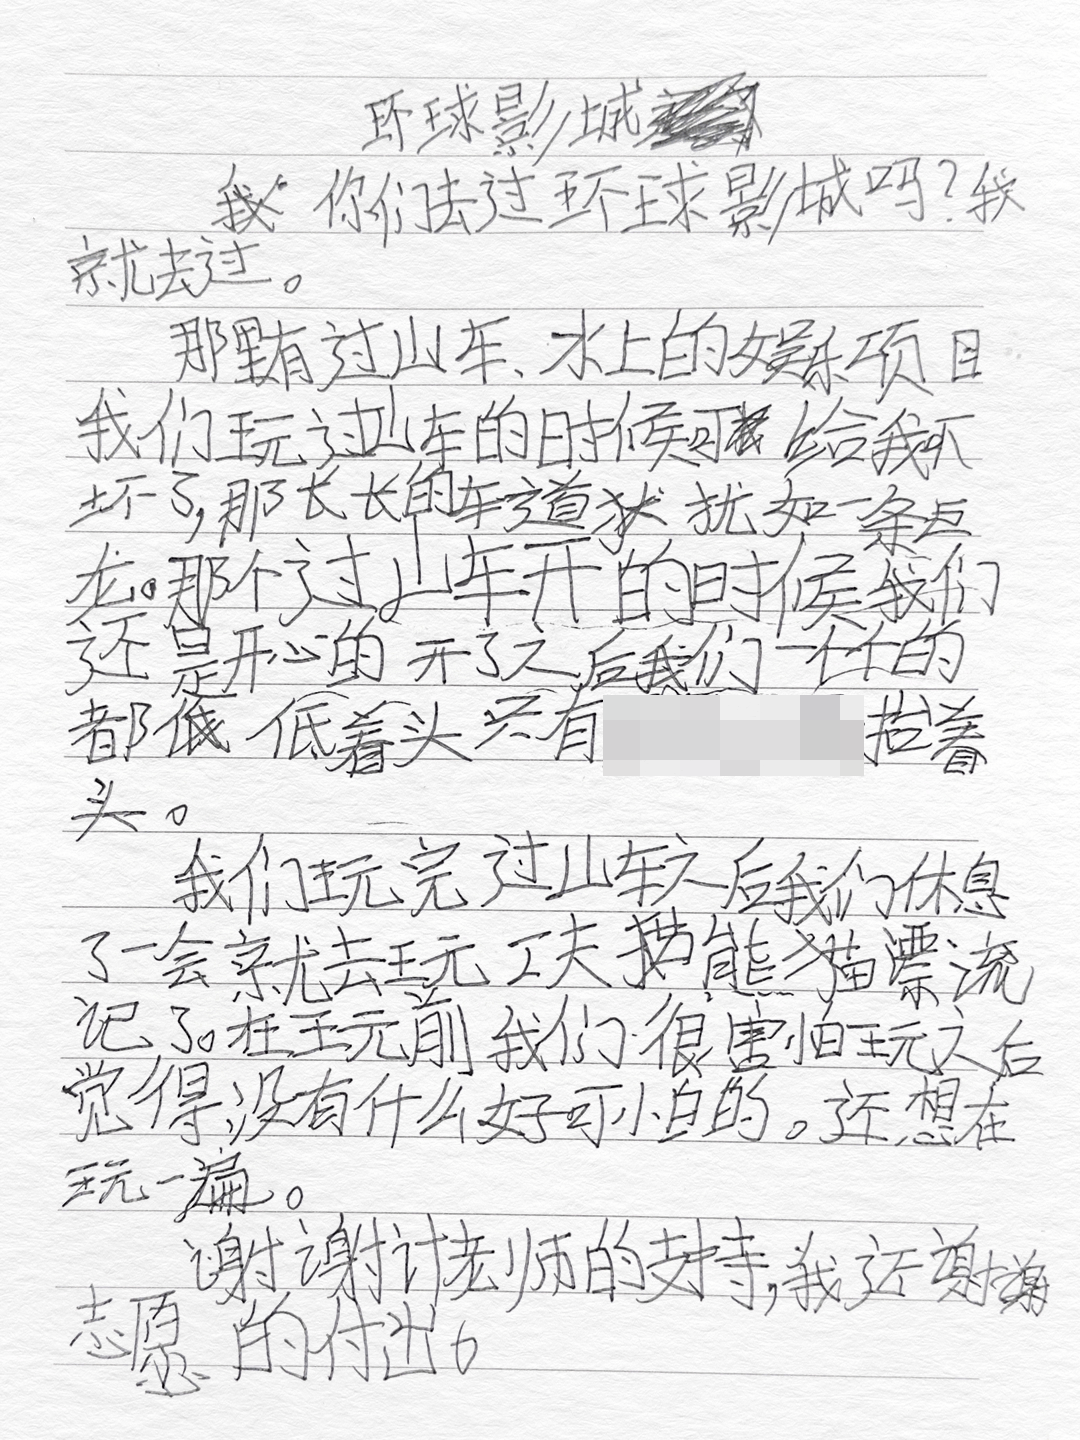 环球影城
你们去过环球影城吗?我
就去过。
那里有过山车、水上的娱乐项目
我们玩过山车的时候可 给我吓
坏了,那长长的车道犹如一条巨
龙。那个过山车开的时候我们
还是开心的 开了之后我们一个个的
都低着头 只有 抬着
头。
我们玩完过山车之后我们休息
了一会就去玩 工夫 熊猫漂流
记了。在玩前我们很害怕玩之后
觉得没有什么好可怕的。还想在
玩一遍。
谢谢计老师的支持,我还谢谢
志愿 的付出。